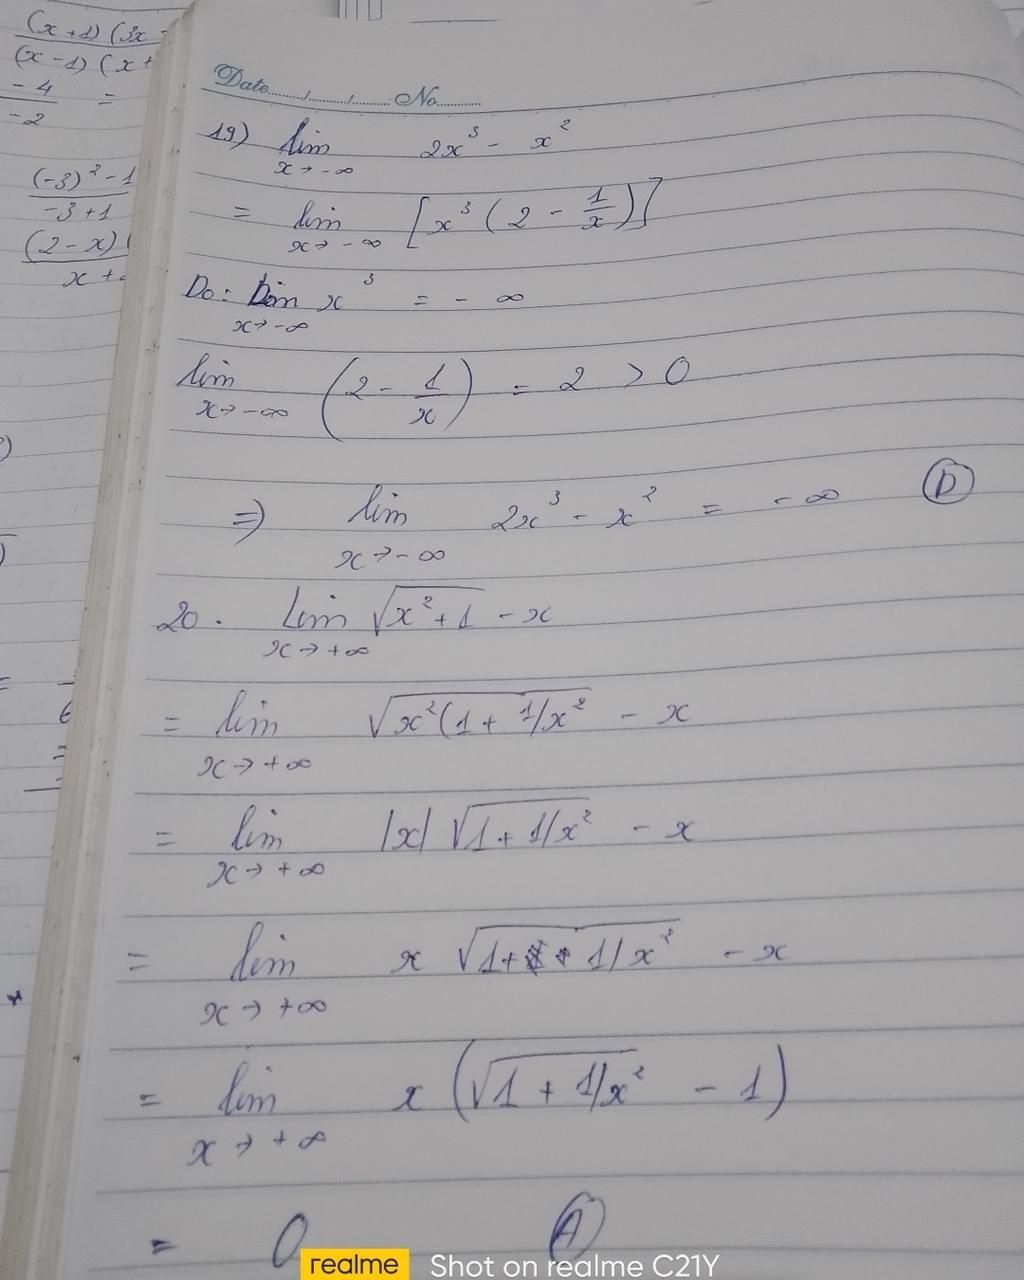 (x+1)(3x -
(x-1)(x+
-4
-2
=
(-3)² - 1
-3+1
(2-x)(
x+
Date....../....../...... No............
19) lim 2x³ - x²
x→-∞
= lim [x³ (2 - 1/x)]
x→-∞
Do: Lim x³ = -∞
x→-∞
lim (2 - 1/x) = 2 > 0
x→-∞
=> lim 2x³ - x² = -∞ D
x→-∞
20. Lim √x²+1 - x
x→+∞
= lim √x²(1 + 1/x² - x
x→+∞
= lim |x| √1 + 1/x² - x
x→+∞
= lim x √1 + 1/x² - x
x→+∞
= lim x (√1 + 1/x² - 1)
x→+∞
= 0 A
realme Shot on realme C21Y